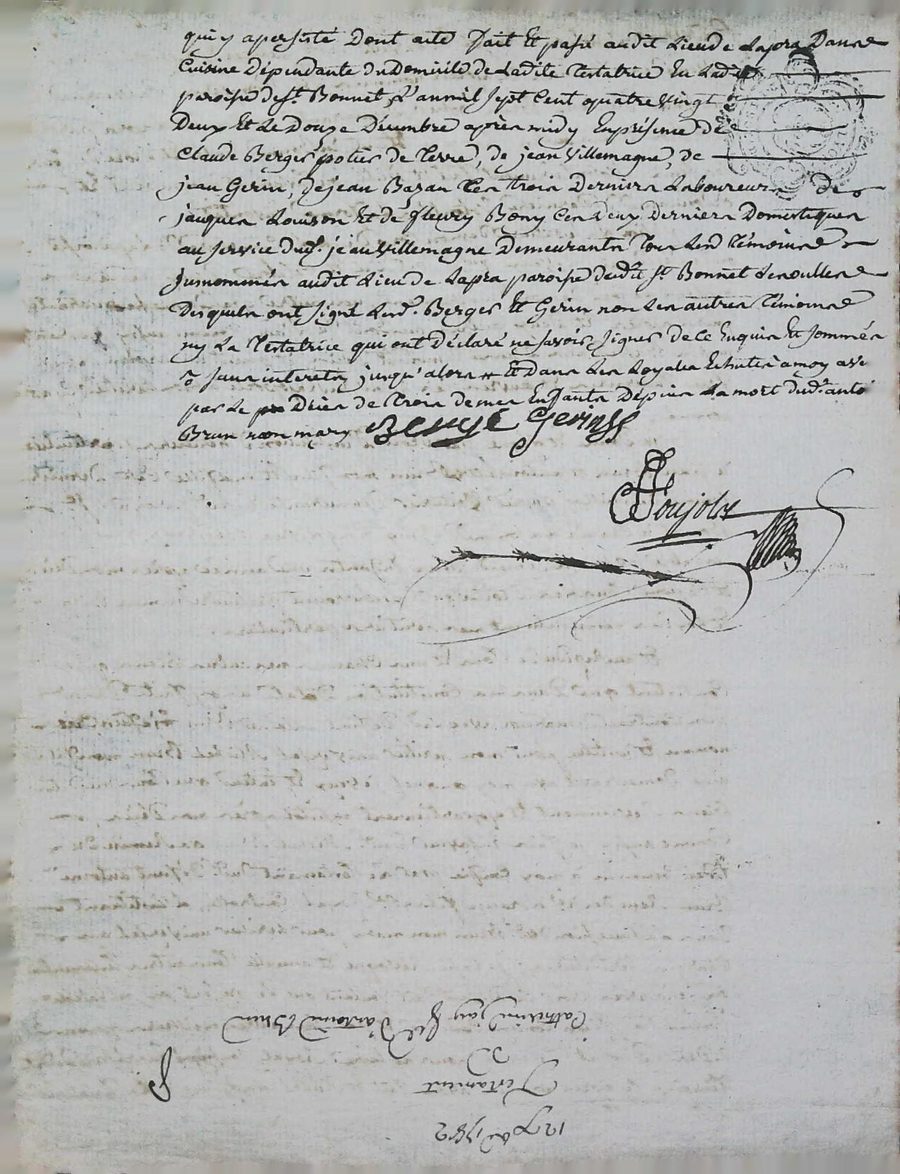 qui y a persisté Dont acte fait et passé audit Lieu de Lapra Dans
Cuisine Dépendante du Domicile de Ladite testatrice En Ladite
paroisse de St. Bonnet L'an mil sept cent quatre vingt
Deux Et Le Douze Décembre après midy En présence de
Claude Berger potier de terre, de jean Villemagne, de
jean Gerin, de jean Bazan Les trois Derniers Laboureurs de
jacques Louison Et de fleury Bony Ces Deux Derniers Domestiques
au service dud. jean Villemagne Demeurants tous Lesd témoins
susnommés audit Lieu de Lapra paroisse dudt. St. Bonnet Lesoulles
Desquels ont signé Lesd. Berger Et Gerin non Les autres témoins
ny La testatrice qui ont déclaré ne savoir signer de ce Enquis Et sommés
sans interets jusqu'alors Et Dans Les Loyales Echutes à moy
par Le Décès de trois de mes Enfants Dépuis La mort dud. anté
Brun mon mary Berge Gerin
Poujolas
Catherine jay d'antoine Brun
Testament
1782